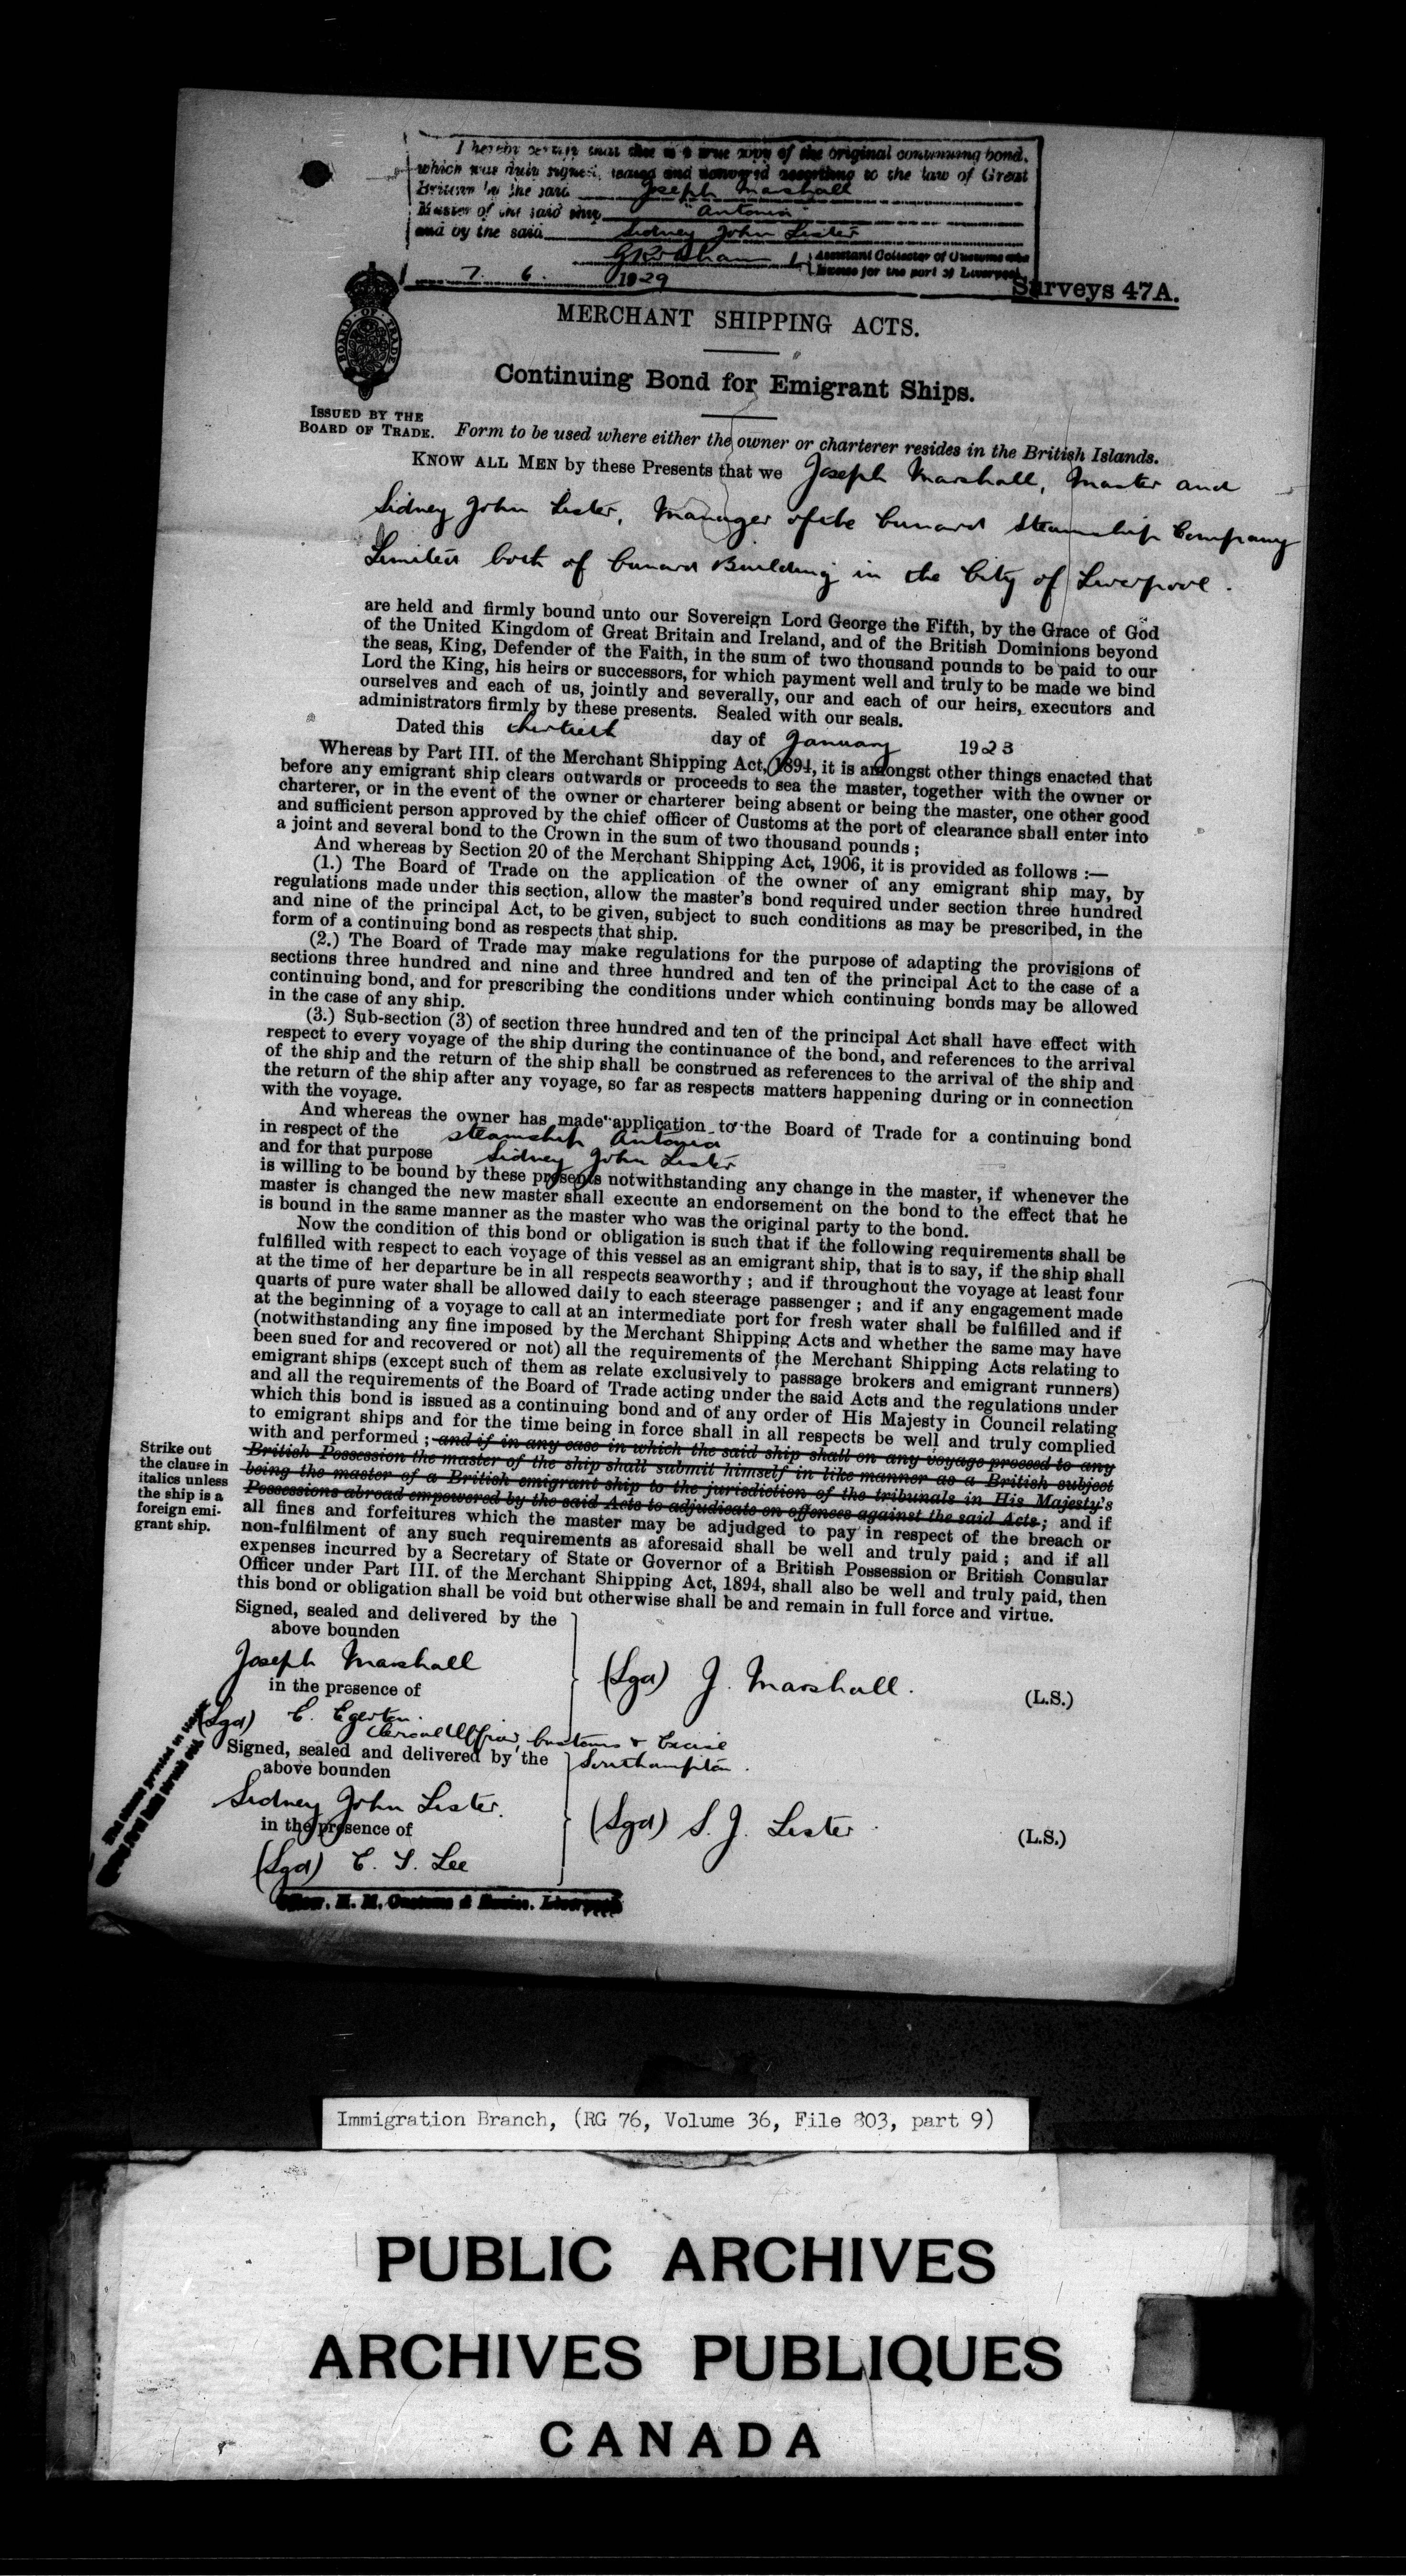 I hereby certify that this is a true copy of the original continuing bond,
which was duly signed, sealed and delivered according to the law of Great
Britain by the said Joseph Marshall
Master of the said ship "Antonia"
and by the said Sidney John Lister
Assistant Collector of Customs and
Excise for the port of Liverpool
7. 6. 1929
Surveys 47A.
BOARD OF TRADE
MERCHANT SHIPPING ACTS.
Continuing Bond for Emigrant Ships.
ISSUED BY THE
BOARD OF TRADE.
Form to be used where either the owner or charterer resides in the British Islands.
KNOW ALL MEN by these Presents that we Joseph Marshall, Master and
Sidney John Lister, Manager of the Cunard Steamship Company
Limited both of Cunard Building in the City of Liverpool.
are held and firmly bound unto our Sovereign Lord George the Fifth, by the Grace of God
of the United Kingdom of Great Britain and Ireland, and of the British Dominions beyond
the seas, King, Defender of the Faith, in the sum of two thousand pounds to be paid to our
Lord the King, his heirs or successors, for which payment well and truly to be made we bind
ourselves and each of us, jointly and severally, our and each of our heirs, executors and
administrators firmly by these presents. Sealed with our seals.
Dated this thirtieth day of January 1923
Whereas by Part III. of the Merchant Shipping Act, 1894, it is amongst other things enacted that
before any emigrant ship clears outwards or proceeds to sea the master, together with the owner or
charterer, or in the event of the owner or charterer being absent or being the master, one other good
and sufficient person approved by the chief officer of Customs at the port of clearance shall enter into
a joint and several bond to the Crown in the sum of two thousand pounds;
And whereas by Section 20 of the Merchant Shipping Act, 1906, it is provided as follows :—
(1.) The Board of Trade on the application of the owner of any emigrant ship may, by
regulations made under this section, allow the master's bond required under section three hundred
and nine of the principal Act, to be given, subject to such conditions as may be prescribed, in the
form of a continuing bond as respects that ship.
(2.) The Board of Trade may make regulations for the purpose of adapting the provisions of
sections three hundred and nine and three hundred and ten of the principal Act to the case of a
continuing bond, and for prescribing the conditions under which continuing bonds may be allowed
in the case of any ship.
(3.) Sub-section (3) of section three hundred and ten of the principal Act shall have effect with
respect to every voyage of the ship during the continuance of the bond, and references to the arrival
of the ship and the return of the ship shall be construed as references to the arrival of the ship and
the return of the ship after any voyage, so far as respects matters happening during or in connection
with the voyage.
And whereas the owner has made application to the Board of Trade for a continuing bond
in respect of the steamship Antonia
and for that purpose Sidney John Lister
is willing to be bound by these presents notwithstanding any change in the master, if whenever the
master is changed the new master shall execute an endorsement on the bond to the effect that he
is bound in the same manner as the master who was the original party to the bond.
Now the condition of this bond or obligation is such that if the following requirements shall be
fulfilled with respect to each voyage of this vessel as an emigrant ship, that is to say, if the ship shall
at the time of her departure be in all respects seaworthy; and if throughout the voyage at least four
quarts of pure water shall be allowed daily to each steerage passenger; and if any engagement made
at the beginning of a voyage to call at an intermediate port for fresh water shall be fulfilled and if
(notwithstanding any fine imposed by the Merchant Shipping Acts and whether the same may have
been sued for and recovered or not) all the requirements of the Merchant Shipping Acts relating to
emigrant ships (except such of them as relate exclusively to passage brokers and emigrant runners)
and all the requirements of the Board of Trade acting under the said Acts and the regulations under
which this bond is issued as a continuing bond and of any order of His Majesty in Council relating
to emigrant ships and for the time being in force shall in all respects be well and truly complied
with and performed; and if in any case in which the said ship shall on any voyage proceed to any
British Possession the master of the ship shall submit himself in like manner as a British subject
being the master of a British emigrant ship to the jurisdiction of the tribunals in His Majesty's
Possessions abroad empowered by the said Acts to adjudicate on offences against the said Acts; and if
all fines and forfeitures which the master may be adjudged to pay in respect of the breach or
non-fulfilment of any such requirements as aforesaid shall be well and truly paid; and if all
expenses incurred by a Secretary of State or Governor of a British Possession or British Consular
Officer under Part III. of the Merchant Shipping Act, 1894, shall also be well and truly paid, then
this bond or obligation shall be void but otherwise shall be and remain in full force and virtue.
Strike out
the clause in
italics unless
the ship is a
foreign emi-
grant ship.
Signed, sealed and delivered by the
above bounden
Joseph Marshall
in the presence of
(Sgd) J. Marshall. (L.S.)
(Sgd) C. Egerton.
Clerical Officer, Customs & Excise
Southampton.
Signed, sealed and delivered by the
above bounden
Sidney John Lister.
in the presence of
(Sgd) S. J. Lister. (L.S.)
(Sgd) C. S. Lee
Officer. H. M. Customs & Excise. Liverpool
Immigration Branch, (RG 76, Volume 36, File 803, part 9)
PUBLIC ARCHIVES
ARCHIVES PUBLIQUES
CANADA